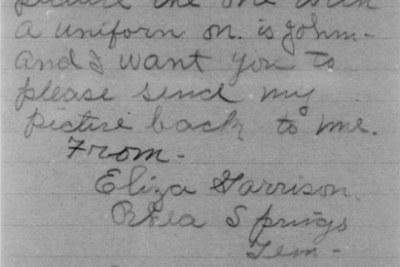 picture the one with
a uniforn on. is John-
and I want you to
please send my
picture back to me.
From-
Eliza Garrison.
Rhea Springs
Tenn-